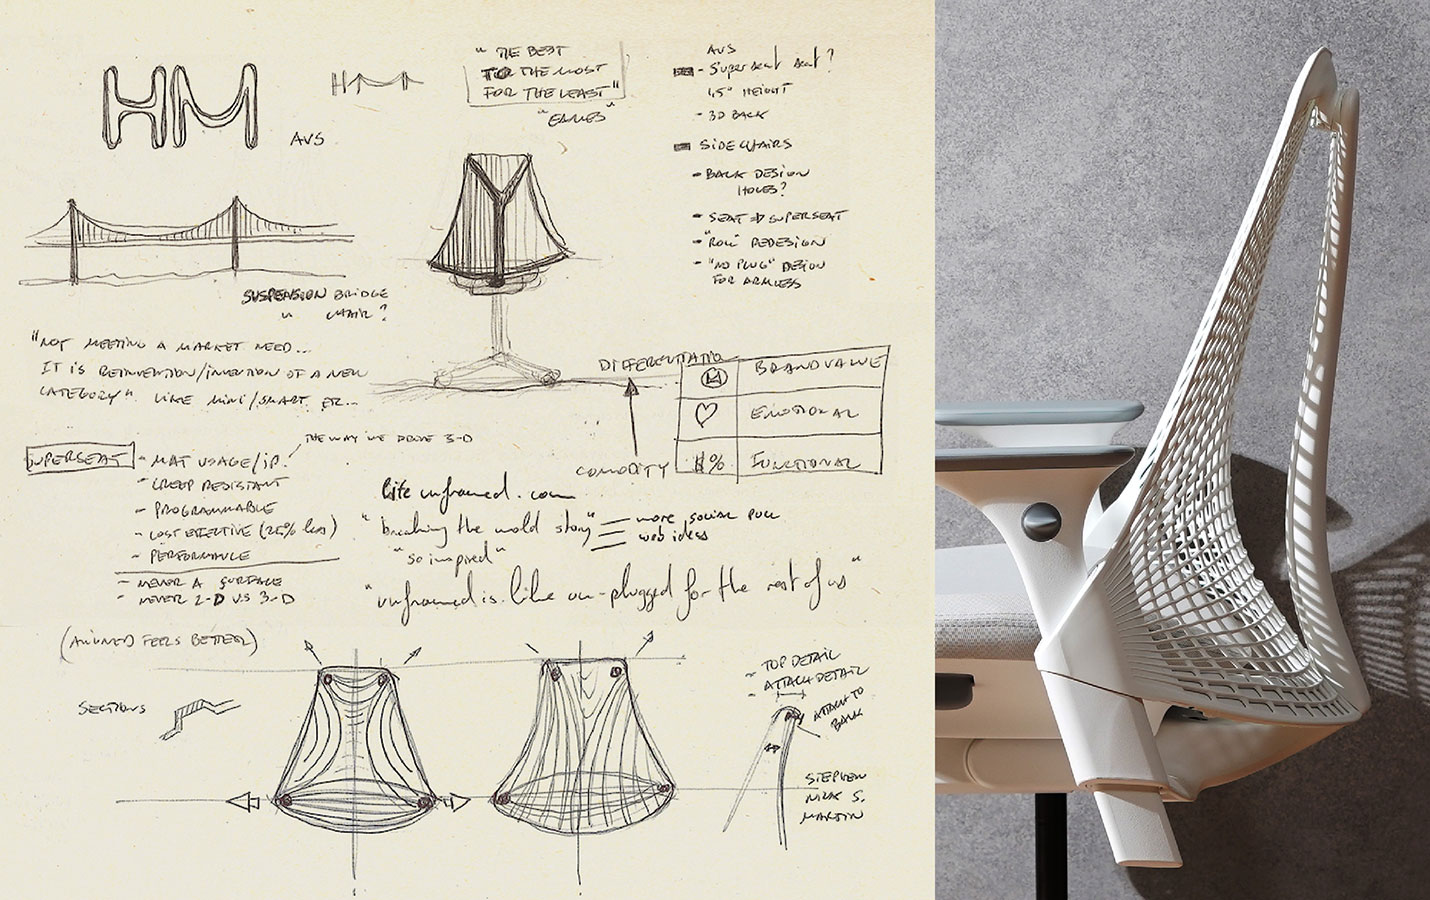 HM
AVS
"THE BEST
FOR THE MOST
FOR THE LEAST"
"EAMES"
AVS
- Superseat seat?
1.5" HEIGHT
- 3D BACK
SIDE CHAIRS
- BACK DESIGN
HOLES?
- SEAT → SUPERSEAT
- "ROLL" REDESIGN
- "NO PLUG" DESIGN
FOR ARMLESS
SUSPENSION BRIDGE
" CHAIR?
"NOT MEETING A MARKET NEED...
IT IS REINVENTION/INVENTION OF A NEW
CATEGORY" LIKE MINI/SMART ETC...
DIFFERENTIATION
BRAND VALUE
EMOTIONAL
% FUNCTIONAL
COMODITY
THE WAY WE DRIVE 3-D
SUPERSEAT
- MAT USAGE/IP.
- CREEP RESISTANT
- PROGRAMMABLE
- COST EFFECTIVE (25% less)
- PERFORMANCE
- NEVER A SURFACE
- NEVER 2-D V.S 3-D
life unframed.com
"breaking the mold story"
more social pull
web ideas
"so inspired"
"unframed is like un-plugged for the rest of us"
(ALIGNED FEELS BETTER)
SECTIONS
- TOP DETAIL
- ATTACH DETAIL
ATTACH TO
BACK
STEPHEN
NICK S.
MARTIN